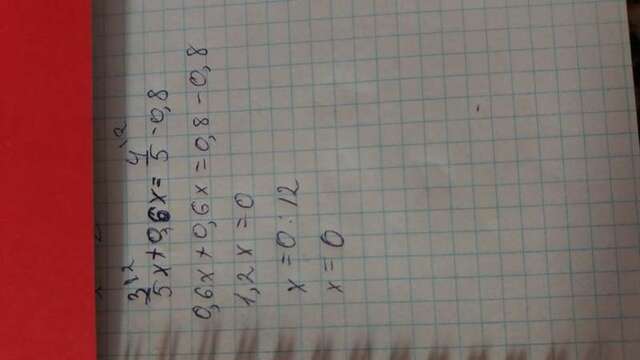 3\2/5 x + 0,6x = 4\2/5 - 0,8
0,6x + 0,6x = 0,8 - 0,8
1,2x = 0
x = 0 : 12
x = 0